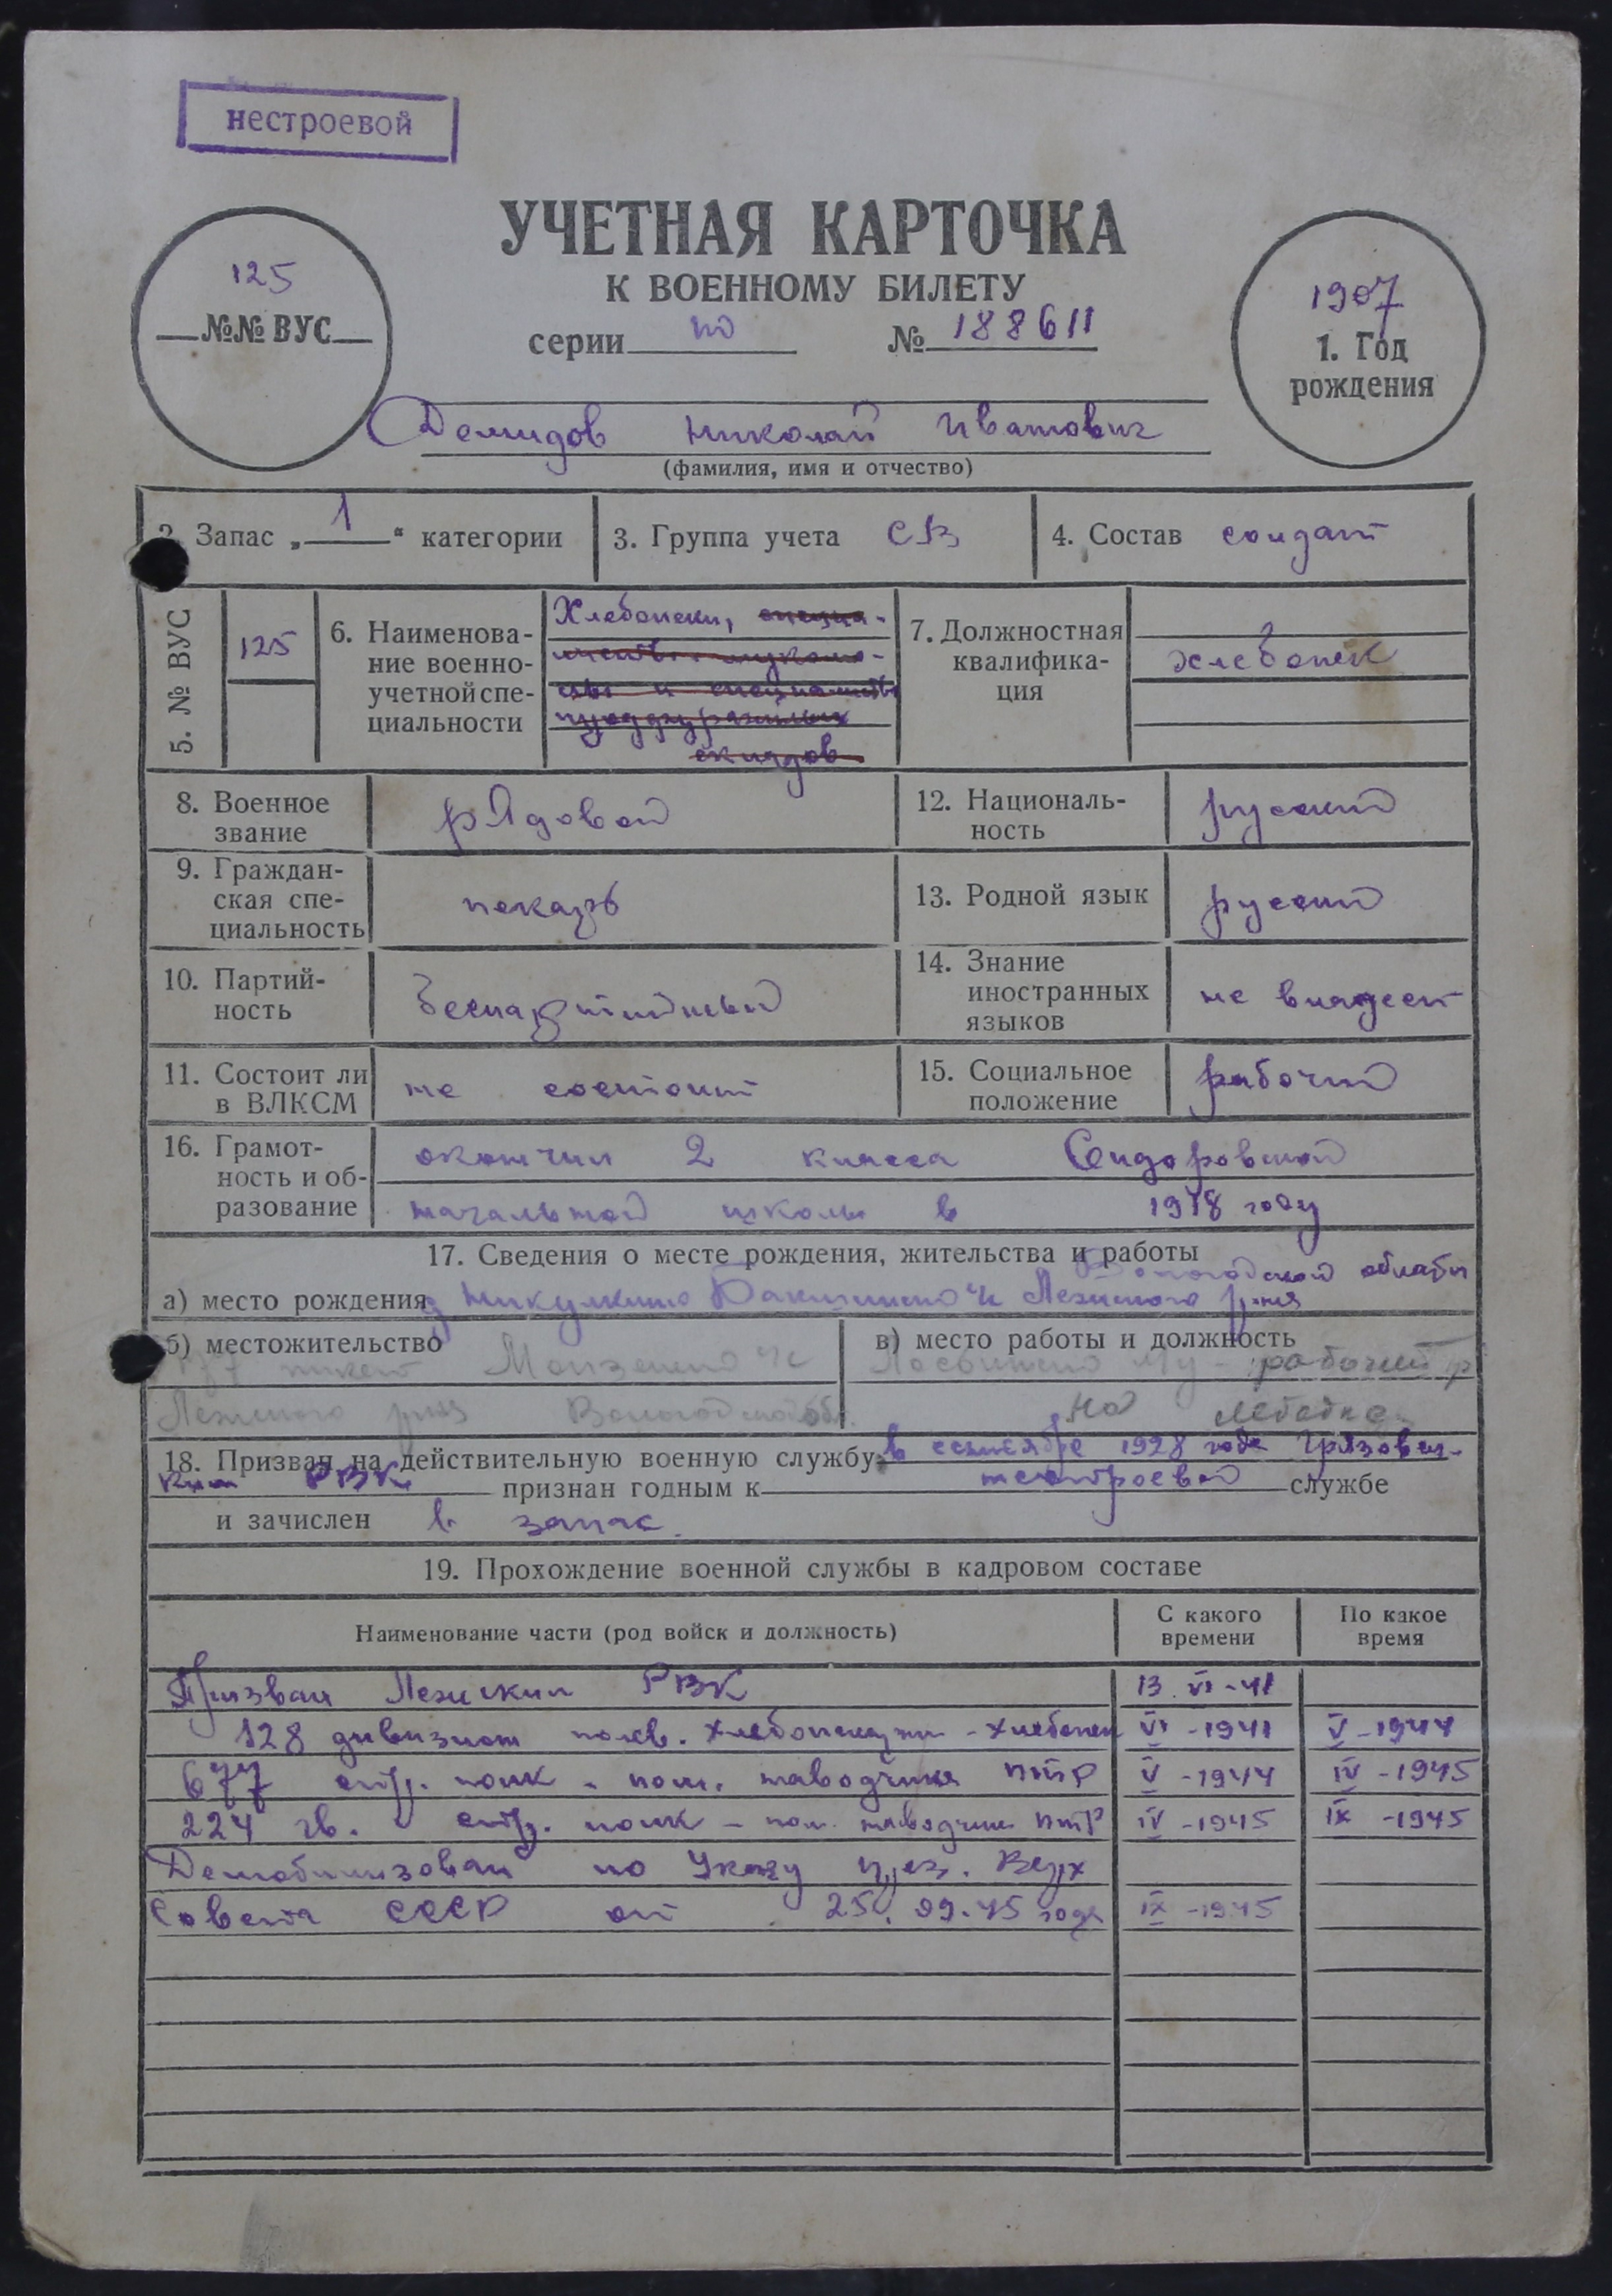 нестроевой
УЧЕТНАЯ КАРТОЧКА
К ВОЕННОМУ БИЛЕТУ
серии но № 188611
125
№№ ВУС
1907
1. Год
рождения
Демидов Николай Иванович
(фамилия, имя и отчество)
2. Запас „ 1 “ категории
3. Группа учета СВ
4. Состав солдат
5. № ВУС
125
6. Наименова-
ние военно-
учетной спе-
циальности
Хлебопеки, специа-
листы мукомо-
лы и специалисты
продфуражных
складов
7. Должностная
квалифика-
ция
хлебопек
8. Военное
звание
рядовой
12. Националь-
ность
русский
9. Граждан-
ская спе-
циальность
пекарь
13. Родной язык
русский
10. Партий-
ность
беспартийный
14. Знание
иностранных
языков
не владеет
11. Состоит ли
в ВЛКСМ
не состоит
15. Социальное
положение
рабочий
16. Грамот-
ность и об-
разование
окончил 2 класса Сидоровской
начальной школы в 1918 году
17. Сведения о месте рождения, жительства и работы
Вологодской области
а) место рождения д Никулкино Бакшинско Лежского р-на
б) местожительство
пикет Монзенско
Лежского р-на Вологодской обл.
в) место работы и должность
рабочий
на лебедке
18. Призван на действительную военную службу в сентябре 1928 года Грязовец-
ким РВК признан годным к нестроевой службе
и зачислен в запас.
19. Прохождение военной службы в кадровом составе
Наименование части (род войск и должность)
С какого
времени
По какое
время
Призван Лежским РВК 13.VI-41
128 дивизион полев. хлебопекарни - хлебопек VI-1941 V-1944
677 стр. полк - пом. наводчика ПТР V-1944 IV-1945
224 гв. стр. полк - пом. наводчик ПТР IV-1945 IX-1945
Демобилизован по Указу през. Верх
Совета СССР от 25.09.45 года IX-1945